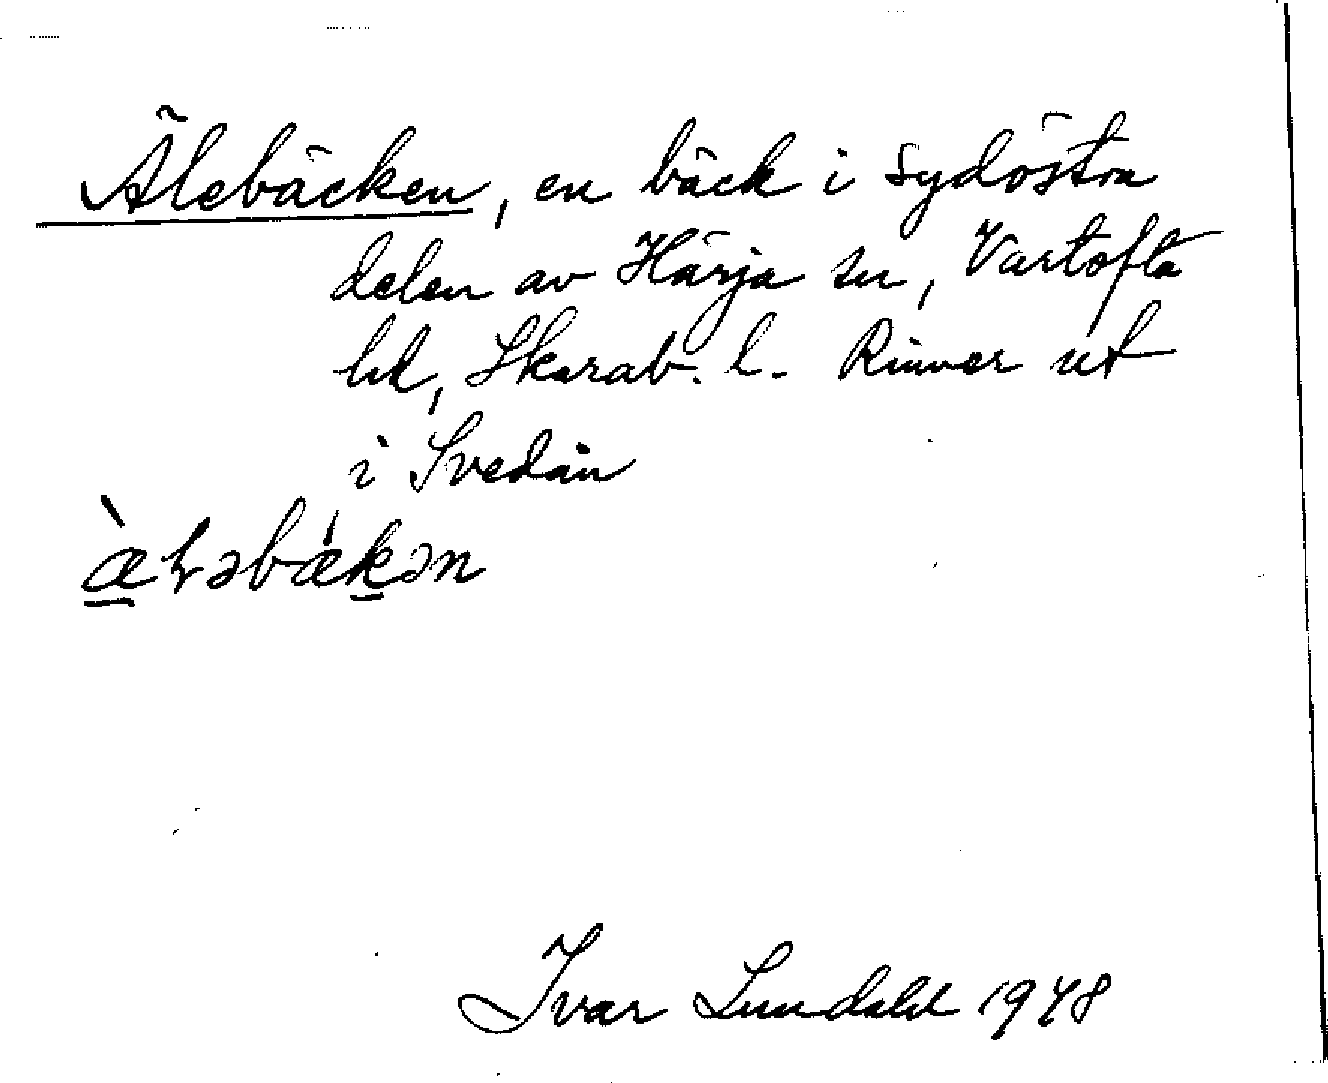 Älebäcken, en bäck i sydöstra
delen av Härja sn, Vartofta
hd, Skarab. l. Rinner ut
i Svedån
æ̀ɬəbækən
Ivar Lundahl 1948